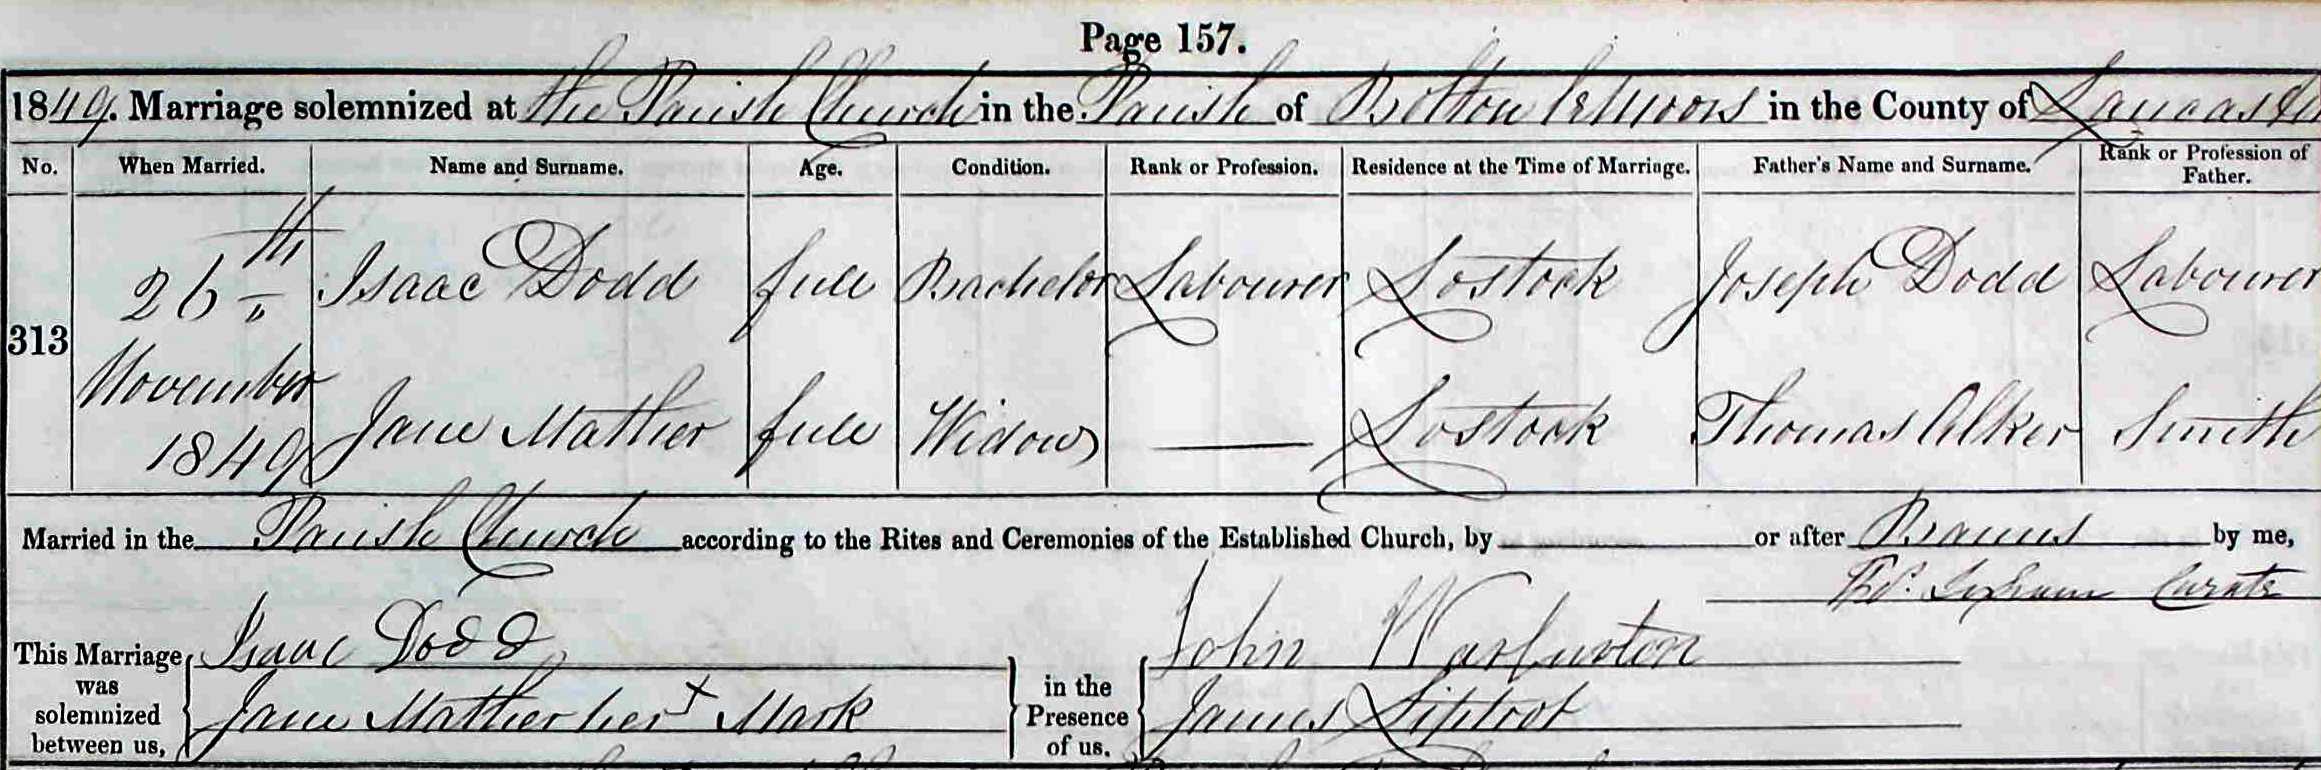 Page 157.
1849. Marriage solemnized at the Parish Church in the Parish of Bolton le Moors in the County of Lancaster
No. When Married. Name and Surname. Age. Condition. Rank or Profession. Residence at the Time of Marriage. Father's Name and Surname. Rank or Profession of Father.
313 26th November 1849
Isaac Dodd full Bachelor Labourer Lostock Joseph Dodd Labourer
Jane Mather full Widow — Lostock Thomas Alker Smith
Married in the Parish Church according to the Rites and Ceremonies of the Established Church, by or after Banns by me,
Curate
This Marriage was solemnized between us, Isaac Dodd in the Presence of us. John Warburton
Jane Mather her X Mark James Liptrot